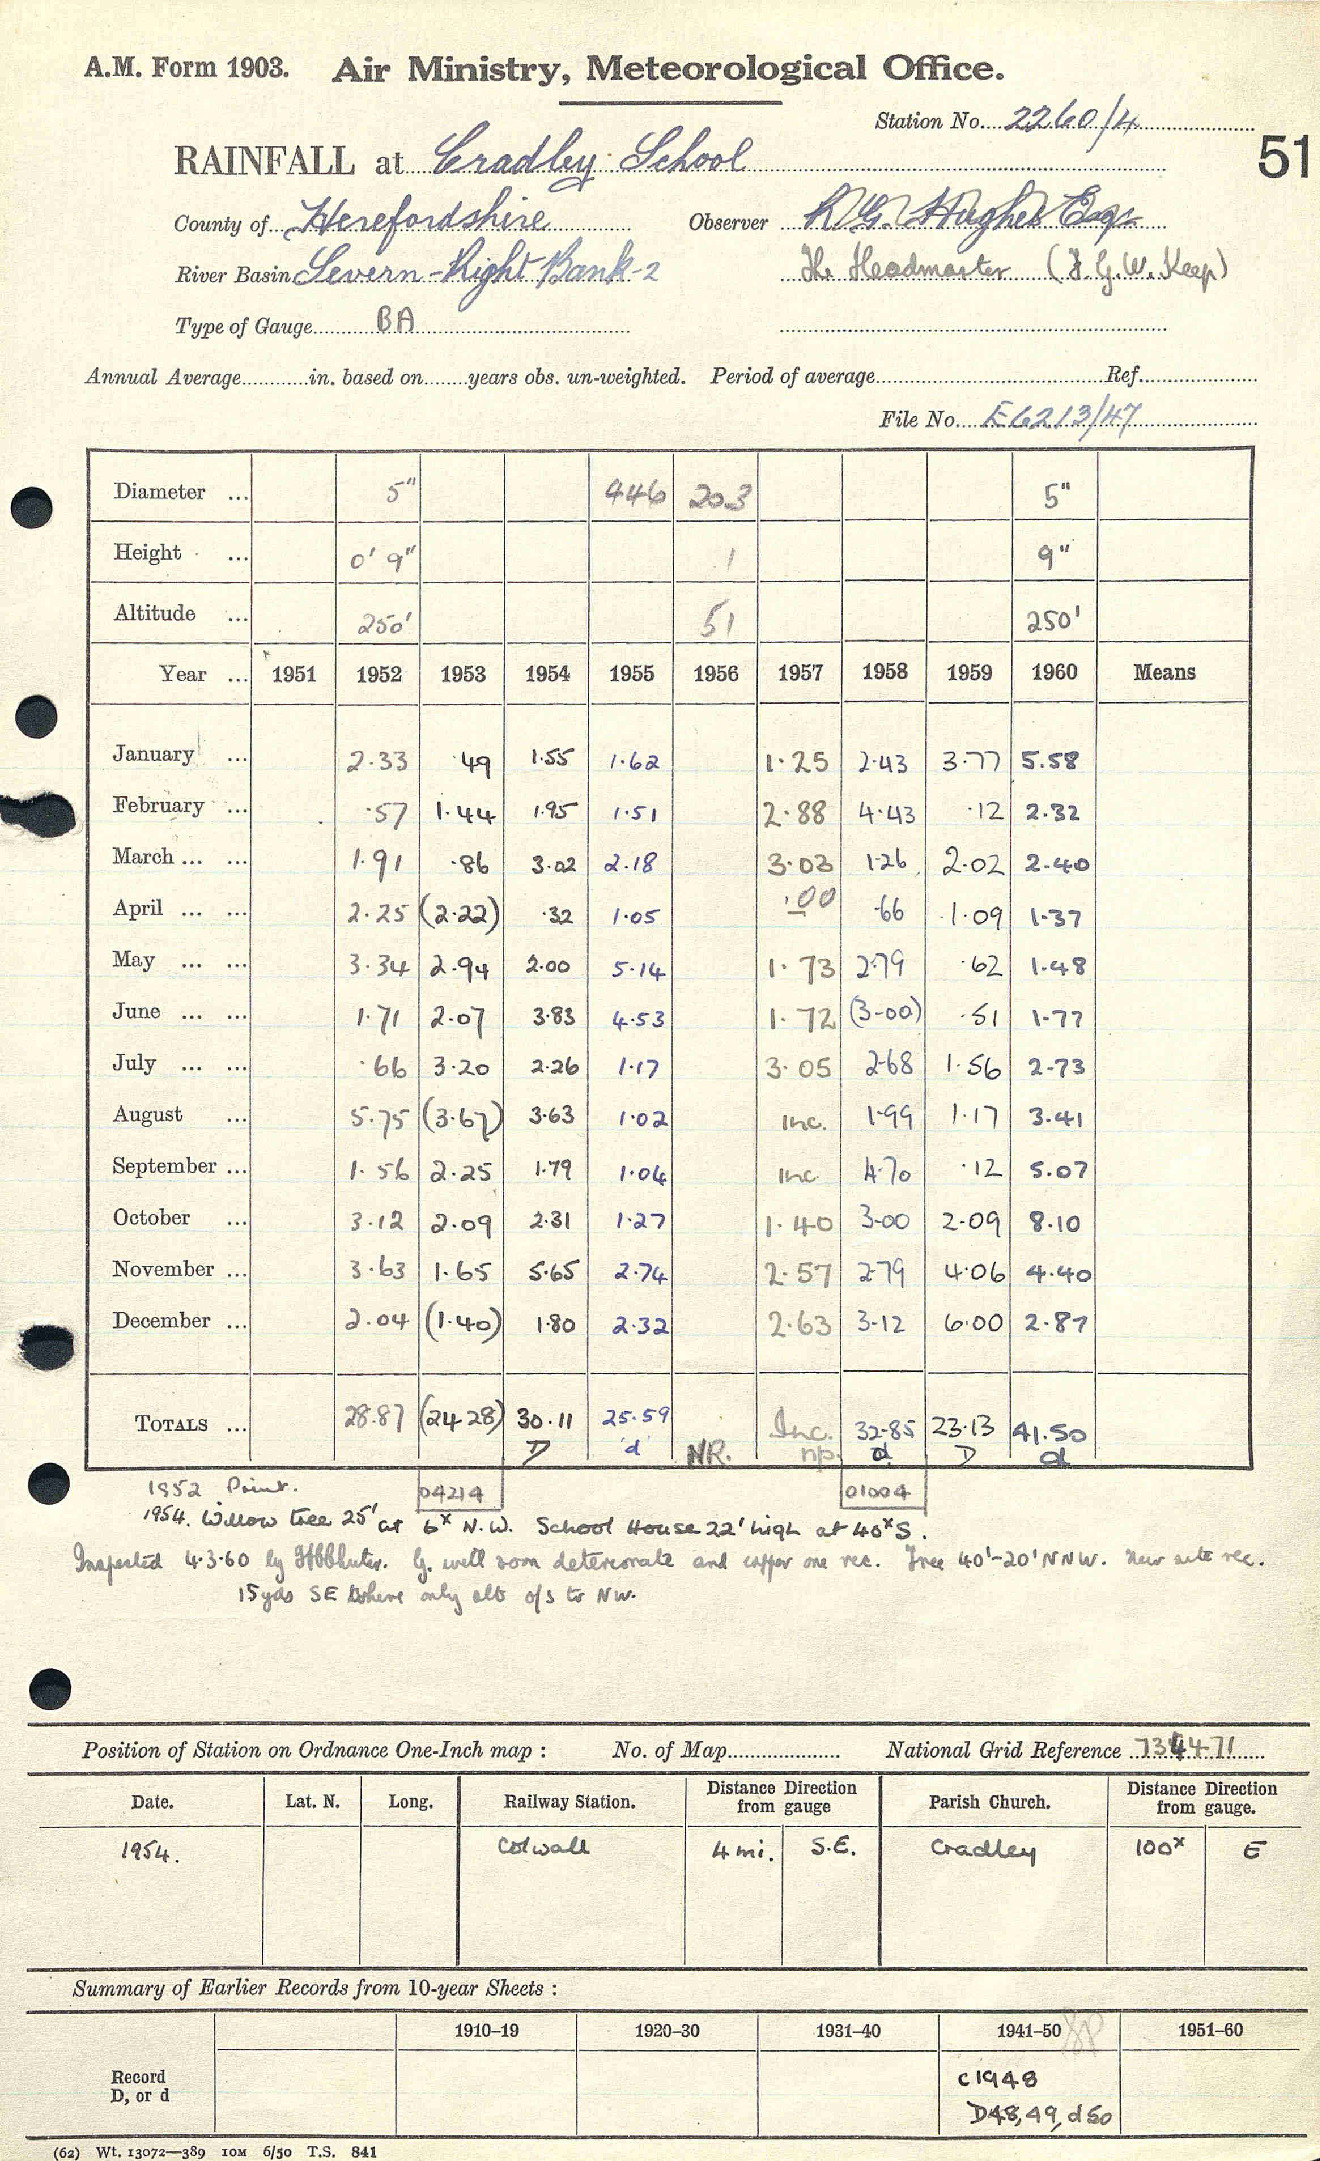 A.M. Form 1903. Air Ministry, Meteorological Office.
Station No. 2260/4
51
RAINFALL at Cradley School
County of Herefordshire Observer R.G. Hughes Esqr
River Basin Severn-Right Bank-2 The Headmaster (F.G.W. Keep)
Type of Gauge BA
Annual Average in. based on years obs. un-weighted. Period of average Ref.
File No. E6213/47
Diameter ... 5" 446 203 5"
Height ... 0' 9" 1 9"
Altitude ... 250' 51 250'
Year ... 1951 1952 1953 1954 1955 1956 1957 1958 1959 1960 Means
January ... 2.33 .49 1.55 1.62 1.25 2.43 3.77 5.58
February ... .57 1.44 1.95 1.51 2.88 4.43 .12 2.32
March ... ... 1.91 .86 3.02 2.18 3.03 1.26 2.02 2.40
April ... ... 2.25 (2.22) .32 1.05 .00 .66 1.09 1.37
May ... ... 3.34 2.94 2.00 5.14 1.73 2.79 .62 1.48
June ... ... 1.71 2.07 3.83 4.53 1.72 (3.00) .51 1.77
July ... ... .66 3.20 2.26 1.17 3.05 2.68 1.56 2.73
August ... 5.75 (3.67) 3.63 1.02 Inc. 1.99 1.17 3.41
September ... 1.56 2.25 1.79 1.04 Inc 4.70 .12 5.07
October ... 3.12 2.09 2.31 1.27 1.40 3.00 2.09 8.10
November ... 3.63 1.65 5.65 2.74 2.57 2.79 4.06 4.40
December ... 2.04 (1.40) 1.80 2.32 2.63 3.12 6.00 2.87
TOTALS ... 28.87 (24.28) 30.11 25.59 Inc. 32.85 23.13 41.50
D d NR. np. d D d
1952 Print. 04214 01004
1954. Willow tree 25' at 6x N.W. School House 22' high at 40x S.
Inspected 4.3.60 by G. well som deteriorate and copper one rec. Tree 40'-20' NNW. New site rec.
15yds SE where only alt o/s to NW.
Position of Station on Ordnance One-Inch map : No. of Map National Grid Reference 734471
Date. Lat. N. Long. Railway Station. Distance Direction from gauge Parish Church. Distance Direction from gauge.
1954. Colwall 4 mi. S.E. Cradley 100x E
Summary of Earlier Records from 10-year Sheets :
1910–19 1920–30 1931–40 1941–50 1951–60
Record D, or d c1948
D48,49, d50
(62) Wt. 13072—389 10M 6/50 T.S. 841